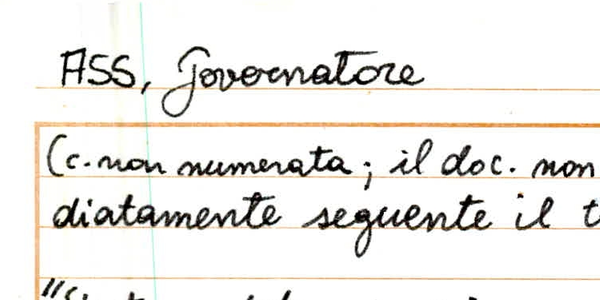 ASS, Governatore
(c. non numerata; il doc. non
diatamente seguente il t